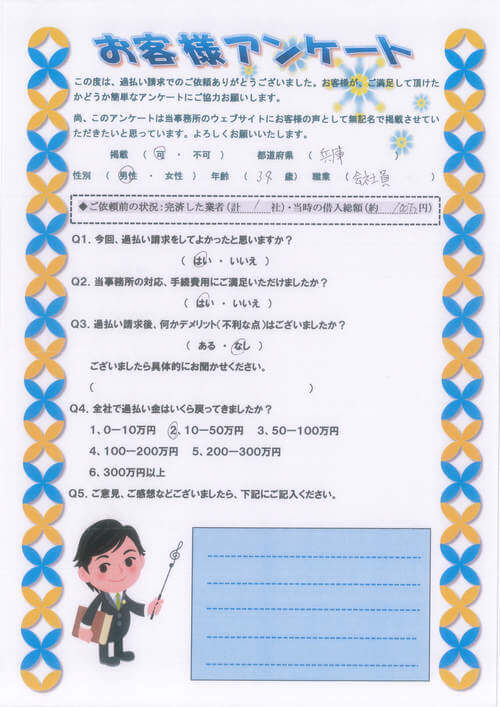 お客様アンケート
この度は、過払い請求でのご依頼ありがとうございました。お客様が、ご満足して頂けた
かどうか簡単なアンケートにご協力お願いします。
尚、このアンケートは当事務所のウェブサイトにお客様の声として無記名で掲載させてい
ただきたいと思っています。よろしくお願いいたします。
掲載 ( 可 ・ 不可 ) 都道府県 ( 兵庫 )
性別 ( 男性 ・ 女性 ) 年齢 ( 34 歳) 職業 ( 会社員 )
◆ご依頼前の状況:完済した業者(計 1 社)・当時の借入総額(約 100万円)
Q1. 今回、過払い請求をしてよかったと思いますか?
( はい ・ いいえ )
Q2. 当事務所の対応、手続費用にご満足いただけましたか?
( はい ・ いいえ )
Q3. 過払い請求後、何かデメリット(不利な点)はございましたか?
( ある ・ なし )
ございましたら具体的にお聞かせください。
( )
Q4. 全社で過払い金はいくら戻ってきましたか?
1、0-10万円 2、10-50万円 3、50-100万円
4、100-200万円 5、200-300万円
6、300万円以上
Q5. ご意見、ご感想などございましたら、下記にご記入ください。